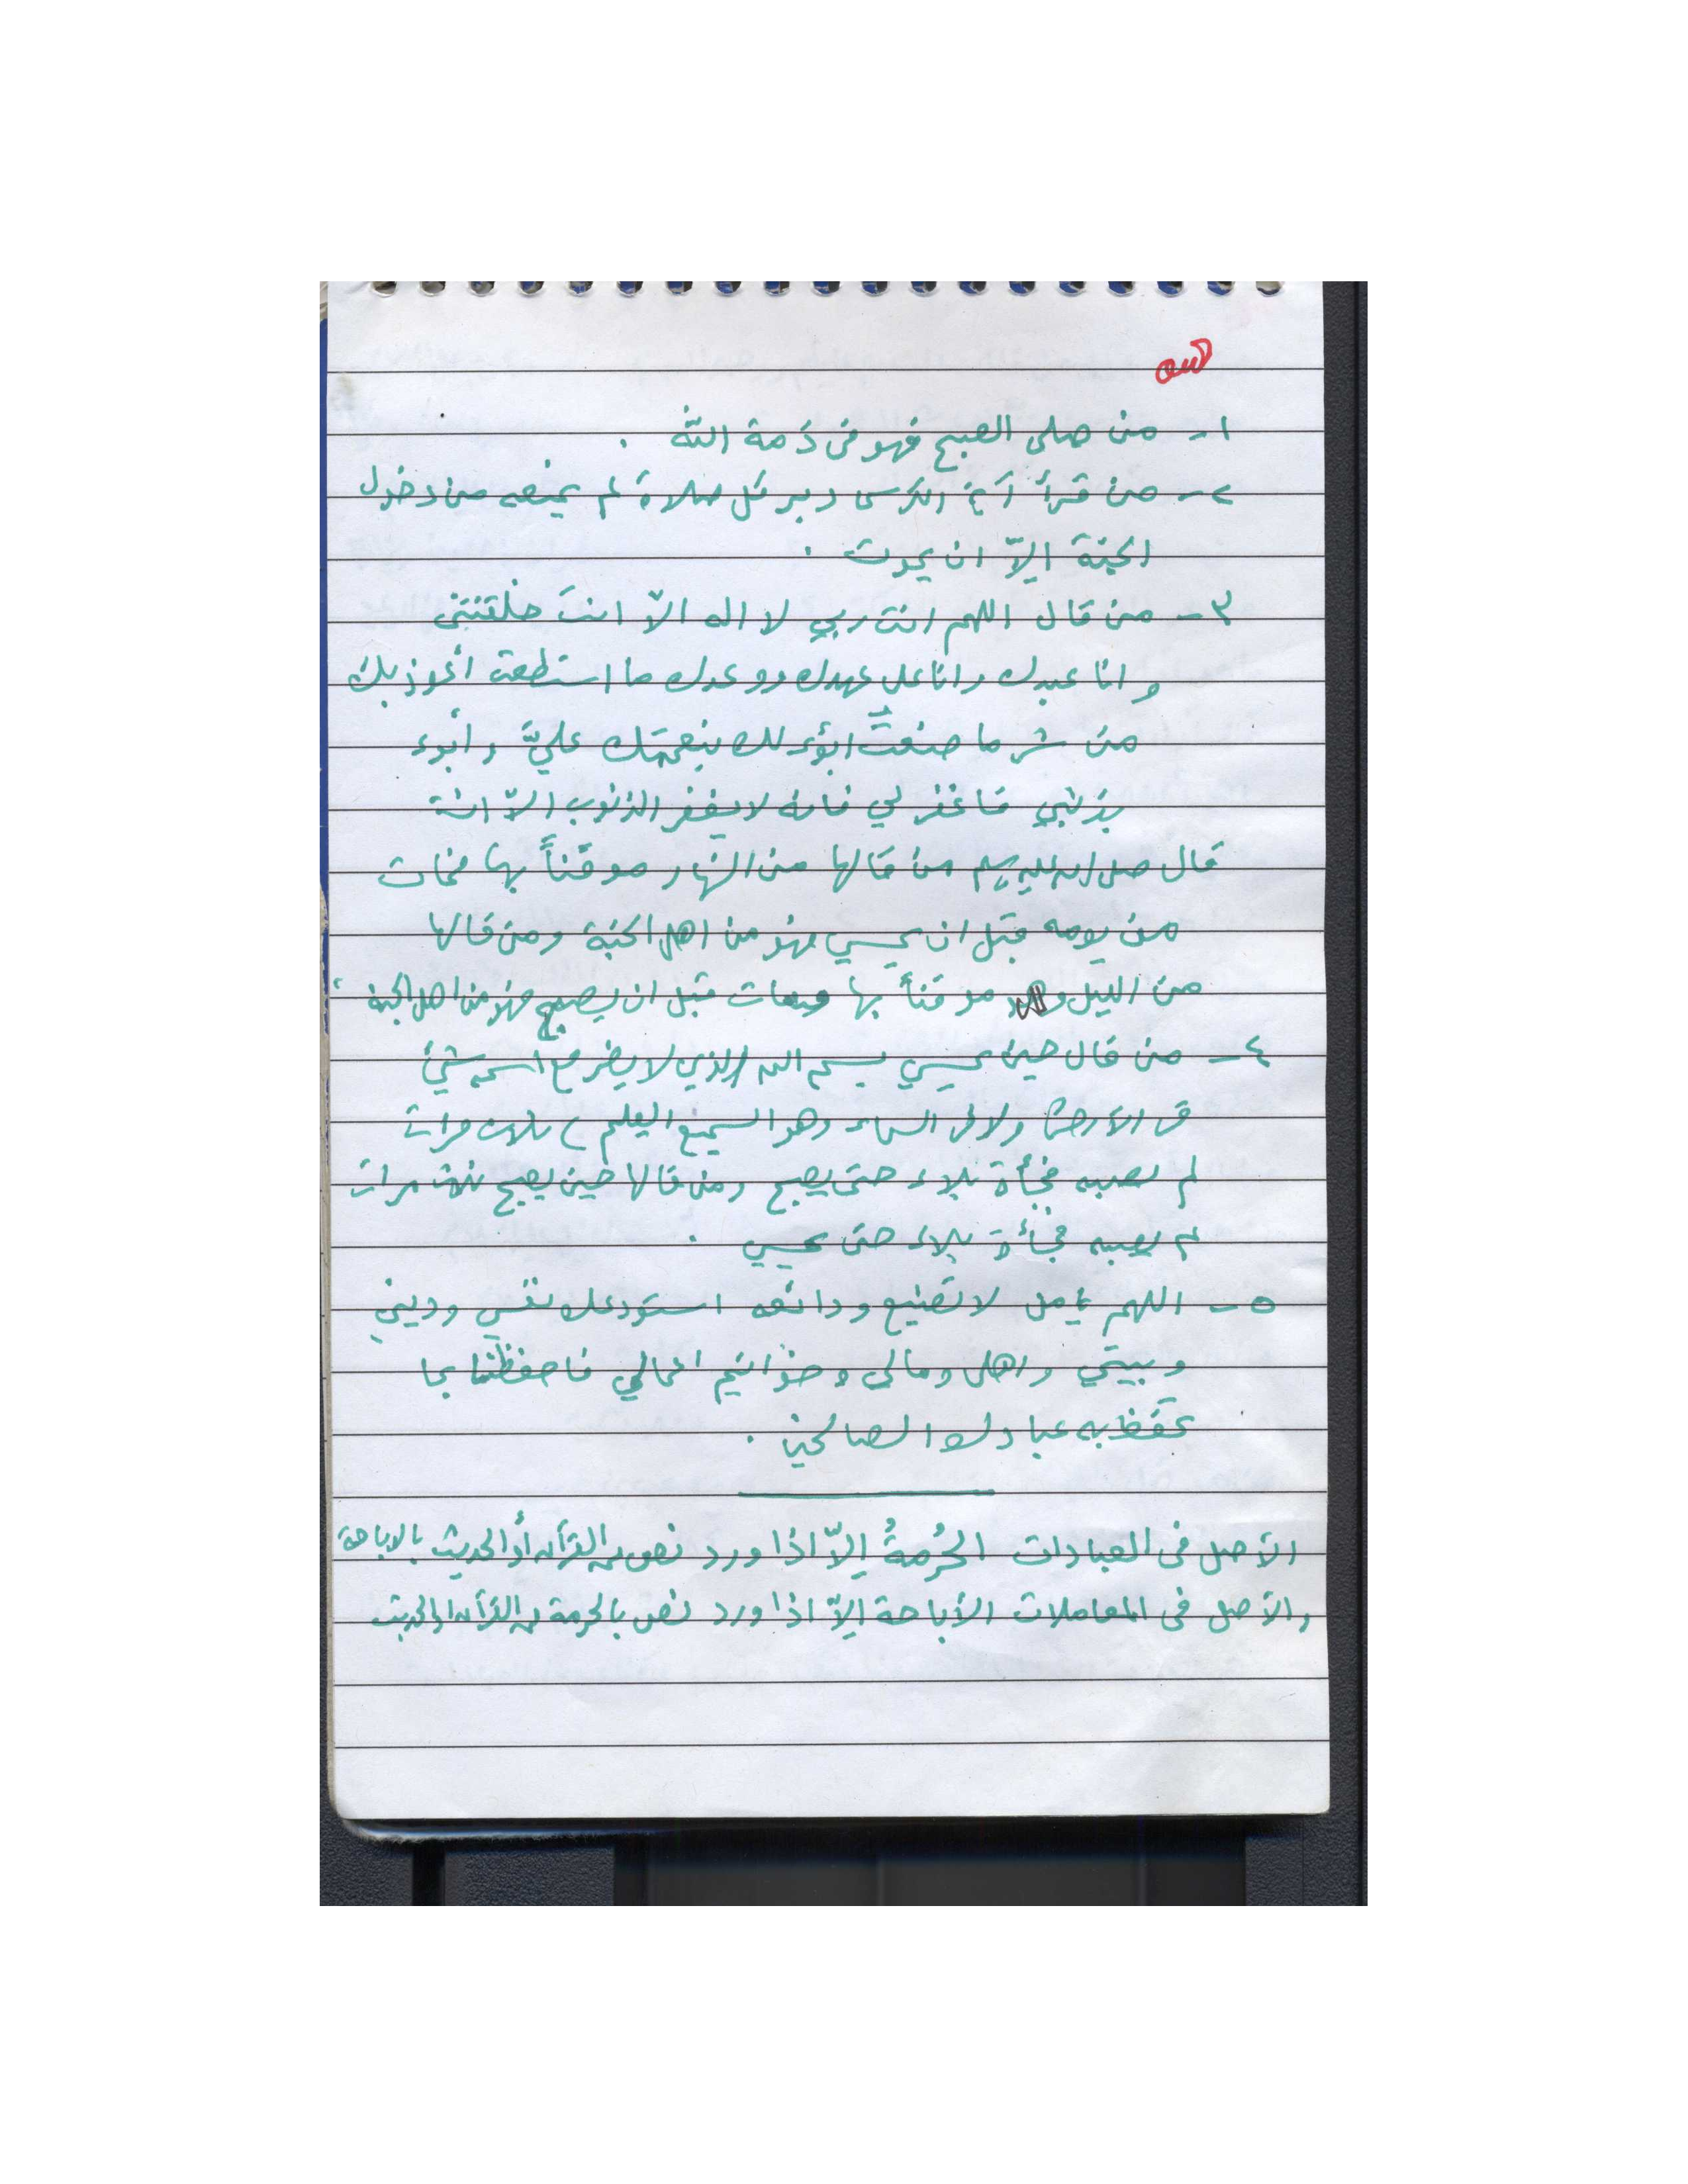 ١- من صلى الصبح فهو في ذمة الله .
٢- من قرأ آية الكرسي دبر كل صلاة لم يمنعه من دخول
الجنة إلاّ ان يموت .
٣- من قال اللهم انت ربي لا اله الاّ انت خلقتني
وانا عبدك وانا على عهدك ووعدك ما استطعت أعوذ بك
من شر ما صنعت ابؤء لك بنعمتك عليَّ وأبوء
بذنبي فاغفر لي فانه لا يغفر الذنوب الاّ انت
قال صلى الله عليه وسلم من قالها من النهار موقناً بها فمات
من يومه قبل ان يمسي فهو من اهل الجنة ومن قالها
من الليل وهو موقناً بها فمات قبل ان يصبح فهو من اهل الجنة .
٤- من قال حين يمسي بسم الله الذي لا يضر مع اسمه شيئ
في الأرض ولا في السماء وهو السميع العليم ) ثلاث مرات
لم تصبه فجأة بلاء حتى يصبح ومن قالها حين يصبح ثلاث مرات
لم تصبه فجأة بلاء حتى يمسي .
٥- اللهم يامن لا تضيع ودائعه استودعك نفسي وديني
وبيتي واهلي ومالي وخواتيم اعمالي فاحفظنا بما
تحفظ به عبادك الصالحين .
الأصل في العبادات الحُرمةُ إلاّ اذا ورد نص من القرآن أو الحديث بالاباحة
والأصل في المعاملات الأباحة إلاّ اذا ورد نص بالحرمة من القرآن او الحديث